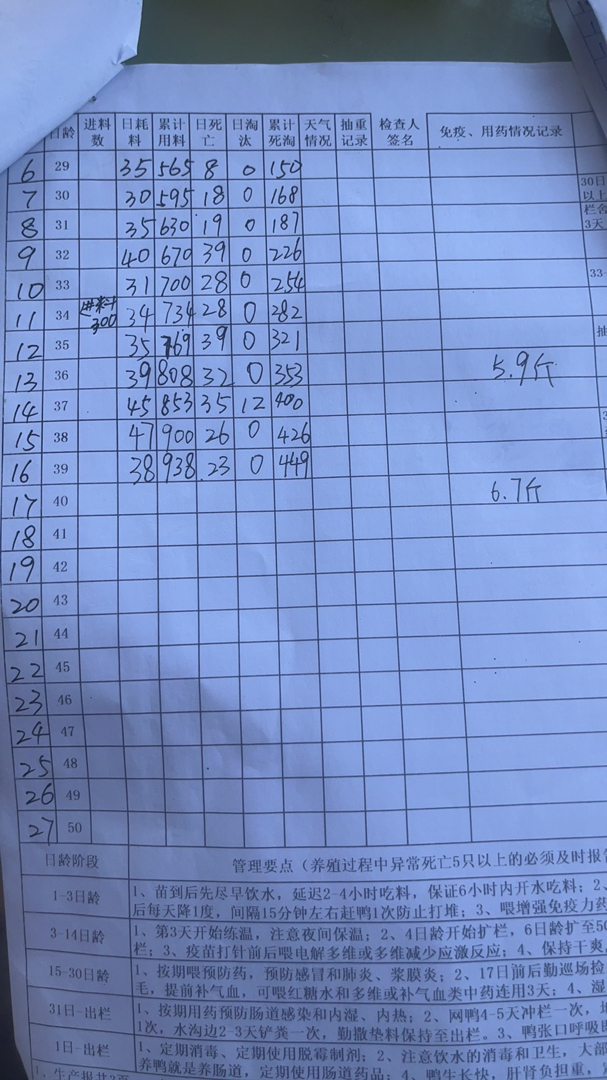 日龄 进料数 日耗料 累计用料 日死亡 日淘汰 累计死淘 天气情况 抽重记录 检查人签名 免疫、用药情况记录
6 29 35 565 8 0 150
7 30 30 595 18 0 168
30日
以上
8 31 35 630 19 0 187
栏舍
3天
9 32 40 670 39 0 226
10 33 31 700 28 0 254
33-
11 34 进料300 34 734 28 0 282
12 35 35 769 39 0 321
抽
13 36 39 808 32 0 353 5.9斤
14 37 45 853 35 12 400
15 38 47 900 26 0 426
16 39 38 938 23 0 449
17 40 6.7斤
18 41
19 42
20 43
21 44
22 45
23 46
24 47
25 48
26 49
27 50
日龄阶段 管理要点（养殖过程中异常死亡5只以上的必须及时报告
1-3日龄 1、苗到后先尽早饮水，延迟2-4小时吃料，保证6小时内开水吃料；2、
后每天降1度，间隔15分钟左右赶鸭1次防止打堆；3、喂增强免疫力药
3-14日龄 1、第3天开始练温，注意夜间保温；2、4日龄开始扩栏，6日龄扩至50
栏；3、疫苗打针前后喂电解多维或多维减少应激反应；4、保持干爽
15-30日龄 1、按期喂预防药，预防感冒和肺炎、浆膜炎；2、17日前后勤巡场捡
毛，提前补气血，可喂红糖水和多维或补气血类中药连用3天；4、湿
31日-出栏 1、按期用药预防肠道感染和内湿、内热；2、网鸭4-5天冲栏一次，地
1次，水沟边2-3天铲粪一次，勤撒垫料保持至出栏。3、鸭张口呼吸即
1日-出栏 1、定期消毒、定期使用脱霉制剂；2、注意饮水的消毒和卫生，大部
养鸭就是养肠道，定期使用肠道药品；4、鸭生长快，肝肾负担重，